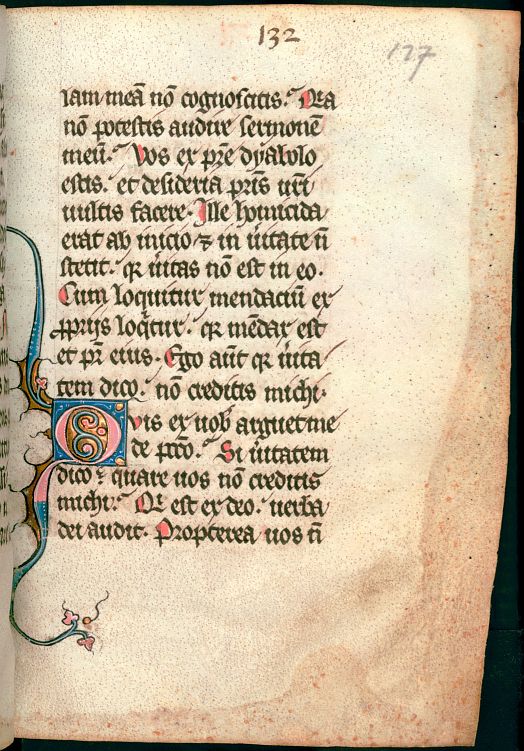 132
127
iam meā nō cognoscitis. Qia
nō potestis audire sermonē
meū. Vos ex pr̄e dyabolo
estis. et desideria pr̄is ur̄i
uultis facere. Ille homicida
erat ab inicio ⁊ in ūitate n̄
stetit. qꝛ ūitas nō est in eo.
Cum loquitur mendaciū ex
ꝓprijs loq̄tur. qꝛ mēdax est
et pr̄ eius. Ego aūt qꝛ ūita
tem dico. nō creditis michi.
Quis ex uob arguet me
de pcc̄o. Si ūitatem
dico. quare uos nō creditis
michi. Qi est ex deo. uerba
dei audit. Propterea uos n̄